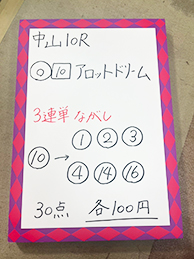 中山10R
◎10 アロットドリーム
3連単 ながし
⑩→①②③
④⑭⑯
30点 各100円